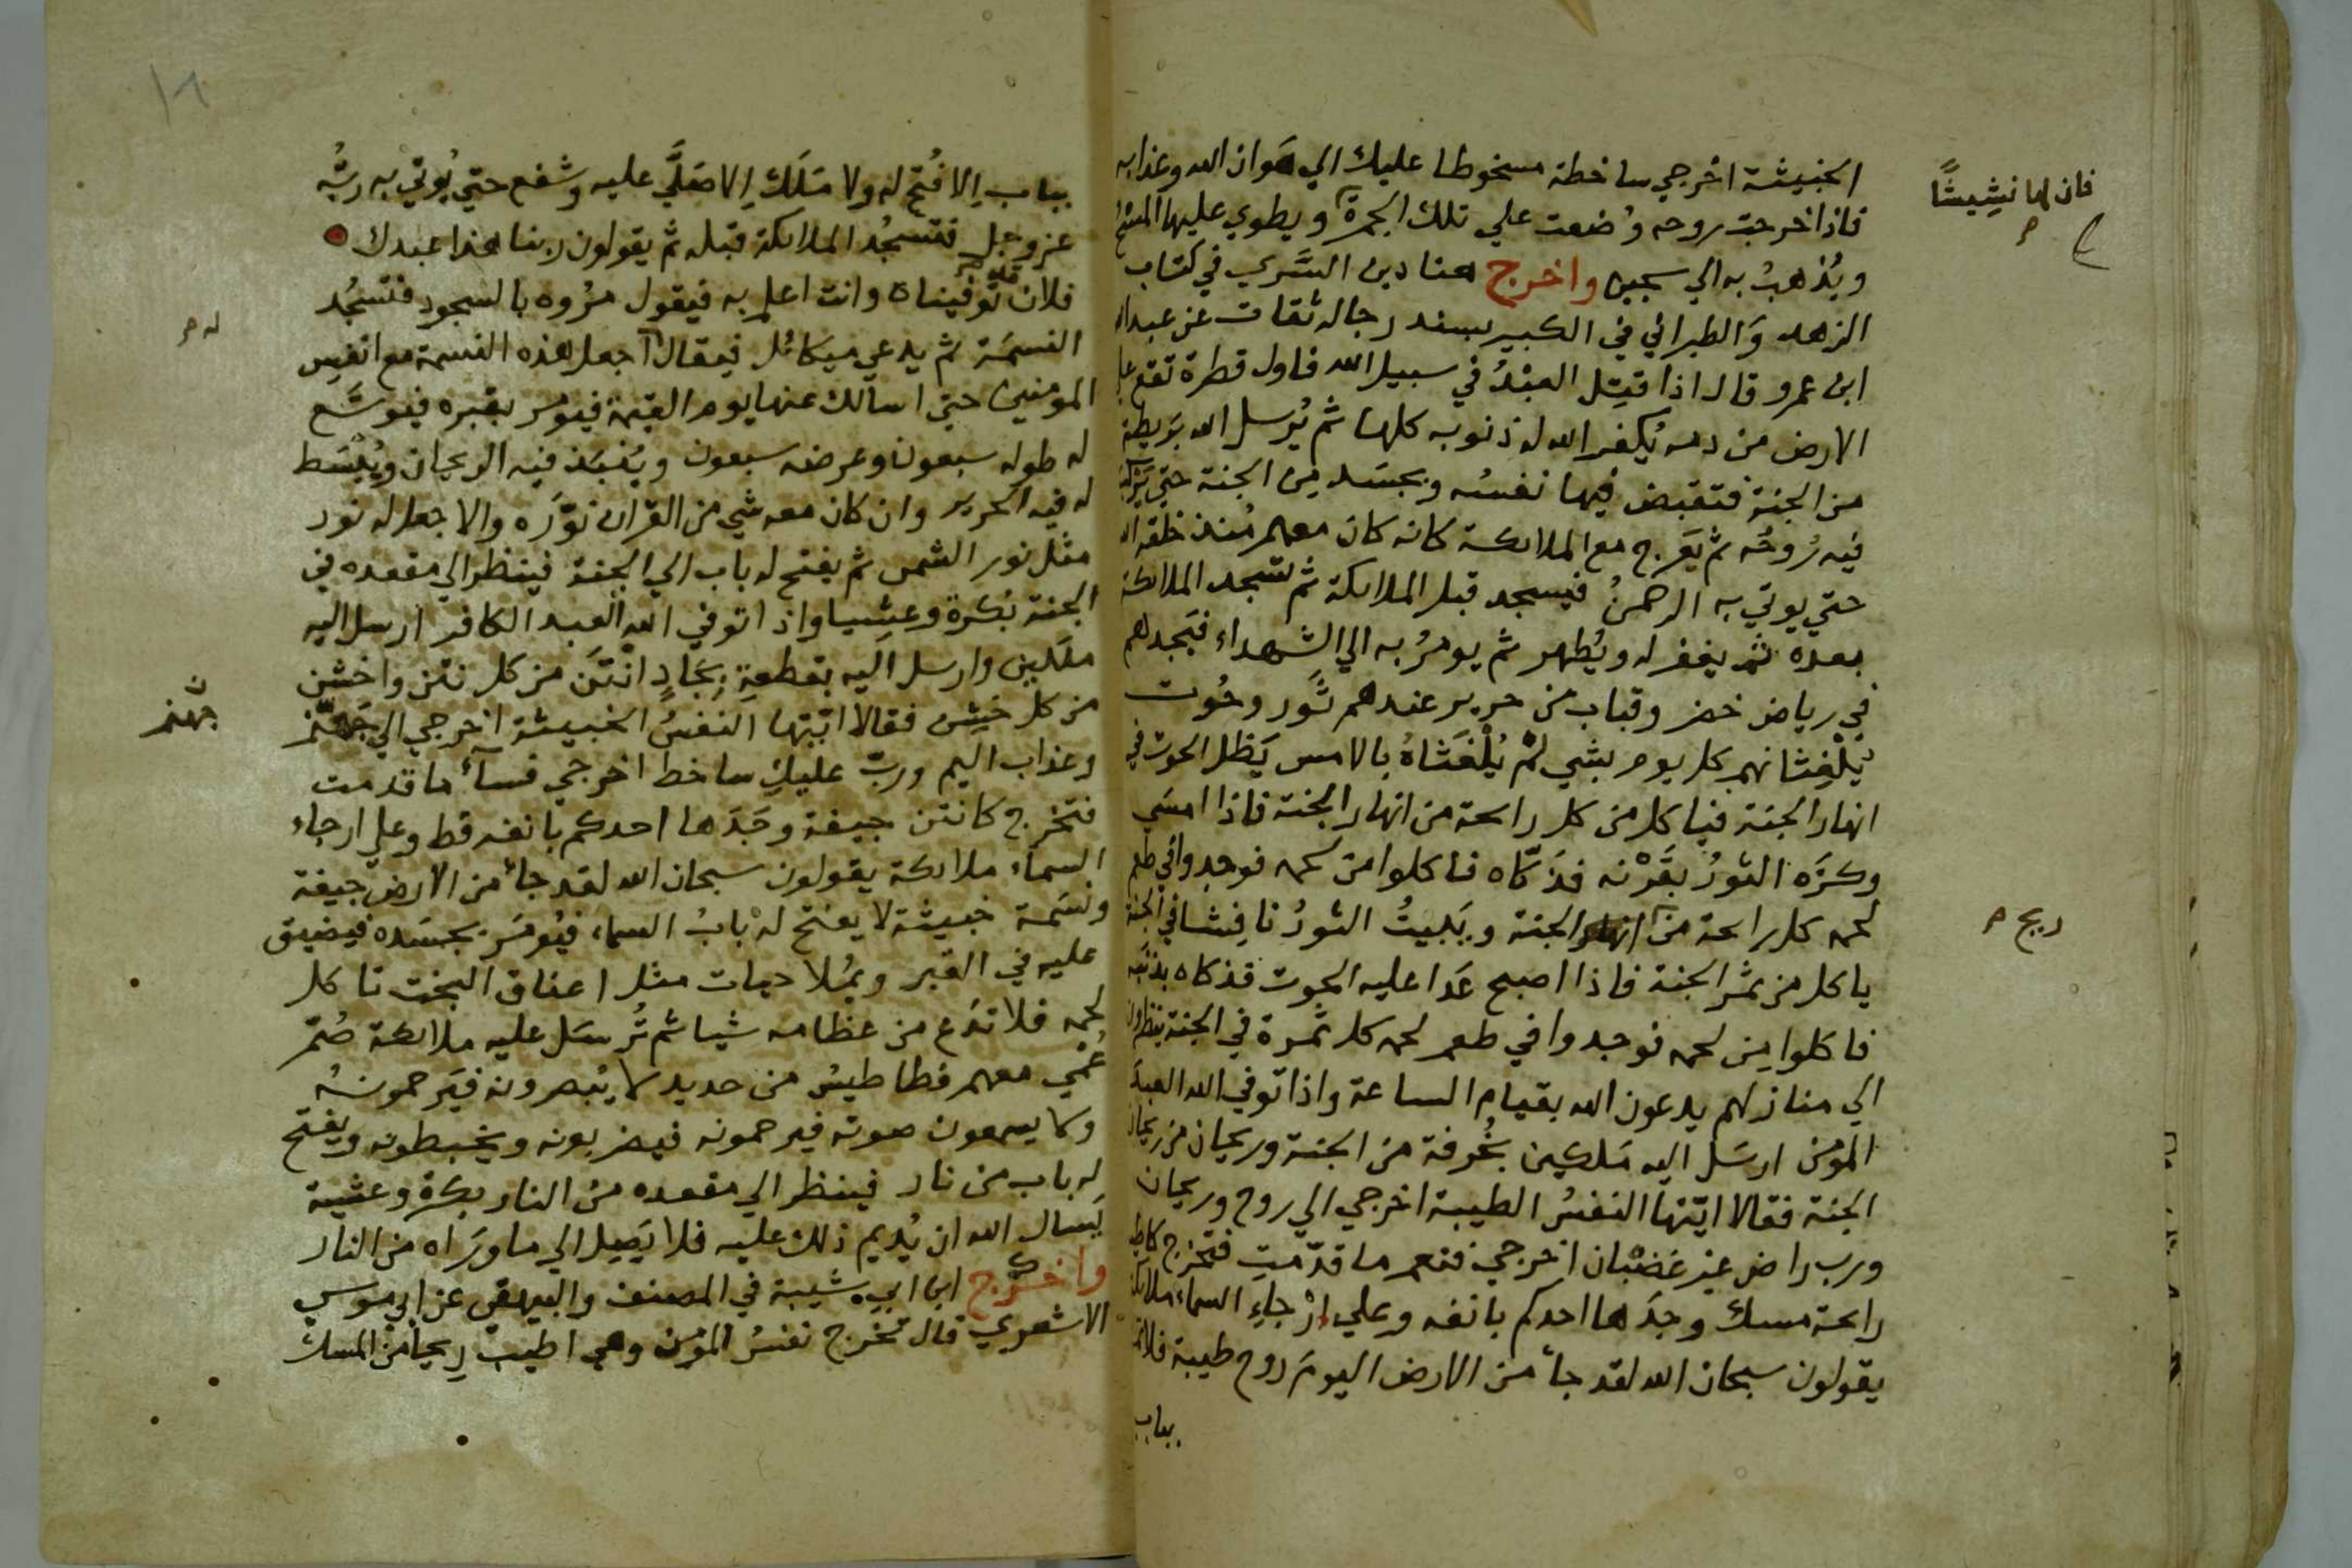 الخبيثة اخرجي ساخطة مسخوطا عليك الي هَوان الله وعذابه
فاذا خرجت روحه وُضعت علي تلك الجمرة ويطوي عليها المِسْحُ
فان لها نشِيشًا
ويُذهبُ به الي سجين واخرج هناد بن السَّري في كتاب
الزهد وَالطبراني في الكبير بسند رجاله ثقات عن عبد الله
ابن عمرو قال اذا قتِل العبْدُ في سبيل الله فاول قطرة تقع علي
الارض من دمه يُكفر الله له ذنوبه كلها ثم يُرسل الله بَريطة
من الجنة فتقبض فيها نفسُه وبجسَد مِن الجنة حتي تركب
فيه رُوحُه ثم يَعرج مع الملائكة كانه كان معهم مُنذ خلقه الله
حتي يوتي به الرحمنُ فيسجد قبل الملائكة ثم تسجد الملائكة
بعده ثم يغفر له ويُطهر ثم يومرُ به الي الشهداء فيَجدهم
في رياض خضر وقباب من حرير عندهم ثَور وحُوت
يُلْغِثانهم كل يوم بشي لم يُلْغَثاهُ بالامس يَظل الحوت في
انهار الجنة فياكل من كل رايحة من انهار الجنة فاذا امسَي
وكزَه الثورُ بقَرْنه فذكّاه فاكلوا من لحمه فوجدوا في طعم
لحمه كل رايحة من انهار الجنة ويَبيتُ الثورُ نافِشا في الجنة
ريح م
ياكل من ثمر الجنة فاذا اصبح غَدا عليه الحوت فذكاه بذنَبه
فاكلوا مِن لحمه فوجدوا في طعم لحمه كل ثمرة في الجنة ينظرون
الي منازلهم يدعون الله بقيام الساعة واذا توفي الله العبدَ
المومن ارسَل اليه مَلكين بخُرقة من الجنة وريحان من ريحان
الجنة فقالا ايّتها النفسُ الطيبة اخرجي الي روح وريحان
ورب راض غير غضْبان اخرجي فنعم ما قدّمتِ فتخرج كاطيب
رايحة مسك وجدَها احدكم بانفه وعلي ارْجاءِ السماء ملائكة
يقولون سبحان الله لقد جأ من الارض اليومَ روح طيبة فلا تمر
بباب
١٨
بباب اِلا فُتح له ولا مَلَك اِلا صَلَّي عليه وشفع حتي يُوتي به ربُّه
عز وجل فتسجُد الملائكة قبله ثم يقولون ربنا هذا عبدك
فلان توفيناه وانت اعلم به فيقول مرُوه بالسجود فتسجُد
النسمَة ثم يدعي ميكائل فيقال اجعل هذه النسمة مع انفس
له م
المومنين حتي اسالك عنها يوم القيمة فيومر بقبره فيوسَّع
له طوله سبعون وعرضه سبعون ويُنبَذ فيه الريحان ويُبْسَط
له فيه الحرير وان كان معه شي من القرآن نوّرَه والا جعل له نور
مثل نور الشمس ثم يفتح له باب الي الجنة فينظر الي مقعده في
الجنة بُكرة وعشِيا واذا توفي الله العبد الكافر ارسل اليه
ملَكين وارسل اليه بقطعةِ بِجَادٍ انْتَن من كل نتن واخشن
من كل خشِن فقالا ايّتها النفسُ الخبيثة اخرجي الي جَهنّم
جهنم
وعذاب اليم وربّ عليكِ ساخط اخرجي فسآء ما قدمت
فتخرج كانتن جيفة وجَدَها احدكم بانفه قط وعلي ارجاء
السمآء ملائكة يقولون سبحان الله لقد جأ من الارض جيفة
ونَسَمة خبيثة لا يفتح له بابُ السماء فيُومَر بجسَده فيضيق
عليه في القبر ويمُلا حيات مثل اعناق البخت تاكل
لحمه فلا تدَع من عظامه شيا ثم تُرسَل عليه ملائكة صُمّ
عُمْي معهم فطاطيسُ من حديد لا يُبصرونه فيَرحمونهُ
ولا يسمعون صوته فيرحمونه فيضربونه ويخبطونه ويفتح
له باب من نار فينظر الي مقعده من النار بكرة وعشية
يَسال الله ان يُديم ذلك عليه فلا يَصِل الي ما ورَاه من النار
واخرج ابن ابي شيبة في المصنف والبيهقي عن ابي موسي
الاشعري قال تخرج نفسُ المومن وهي اطيب رِيحا من المسك